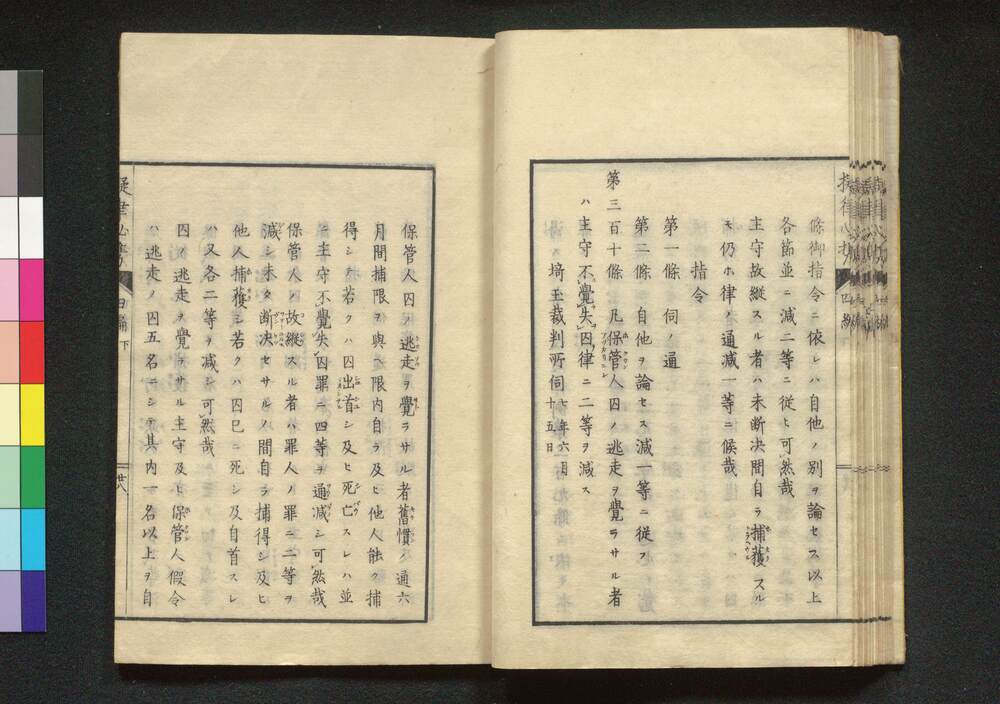 條御指令ニ依レハ自他ノ別ヲ論セス以上
各節並ニ減二等ニ従ヒ可然哉
主守故縦スル者ハ未断决間自ラ捕獲スル
モ仍ホ律ノ通減一等ニ候哉
指令
第一條 伺ノ通
第二條 自他ヲ論セス減一等ニ從フ
第三百十條 凡保管人囚ノ逃走ヲ覺ラサル者
ハ主守不覺失囚律ニ二等ヲ減ス
埼玉裁判所伺 七年六月十五日
保管人囚ノ逃走ヲ覺ラサル者舊慣ノ通六
月間捕限ヲ與ヘ限内自ラ及ヒ他人能ク捕
得シ若クハ囚出首シ及ヒ死亡スレハ並
ニ主守不覺失囚罪ニ四等ヲ通減シ可然哉
保管人ノ故縱スル者ハ罪人ノ罪ニ二等ヲ
減シ未タ断决セサルノ間自ラ捕得シ及ヒ
他人捕獲シ若クハ囚已ニ死シ及自首スレ
ハ又各二等ヲ減シ可然哉
囚ノ逃走ヲ覺ラサル主守及ヒ保管人假令
ハ逃走ノ囚五名ニシテ其内一名以上ヲ自
四編 下
廿八